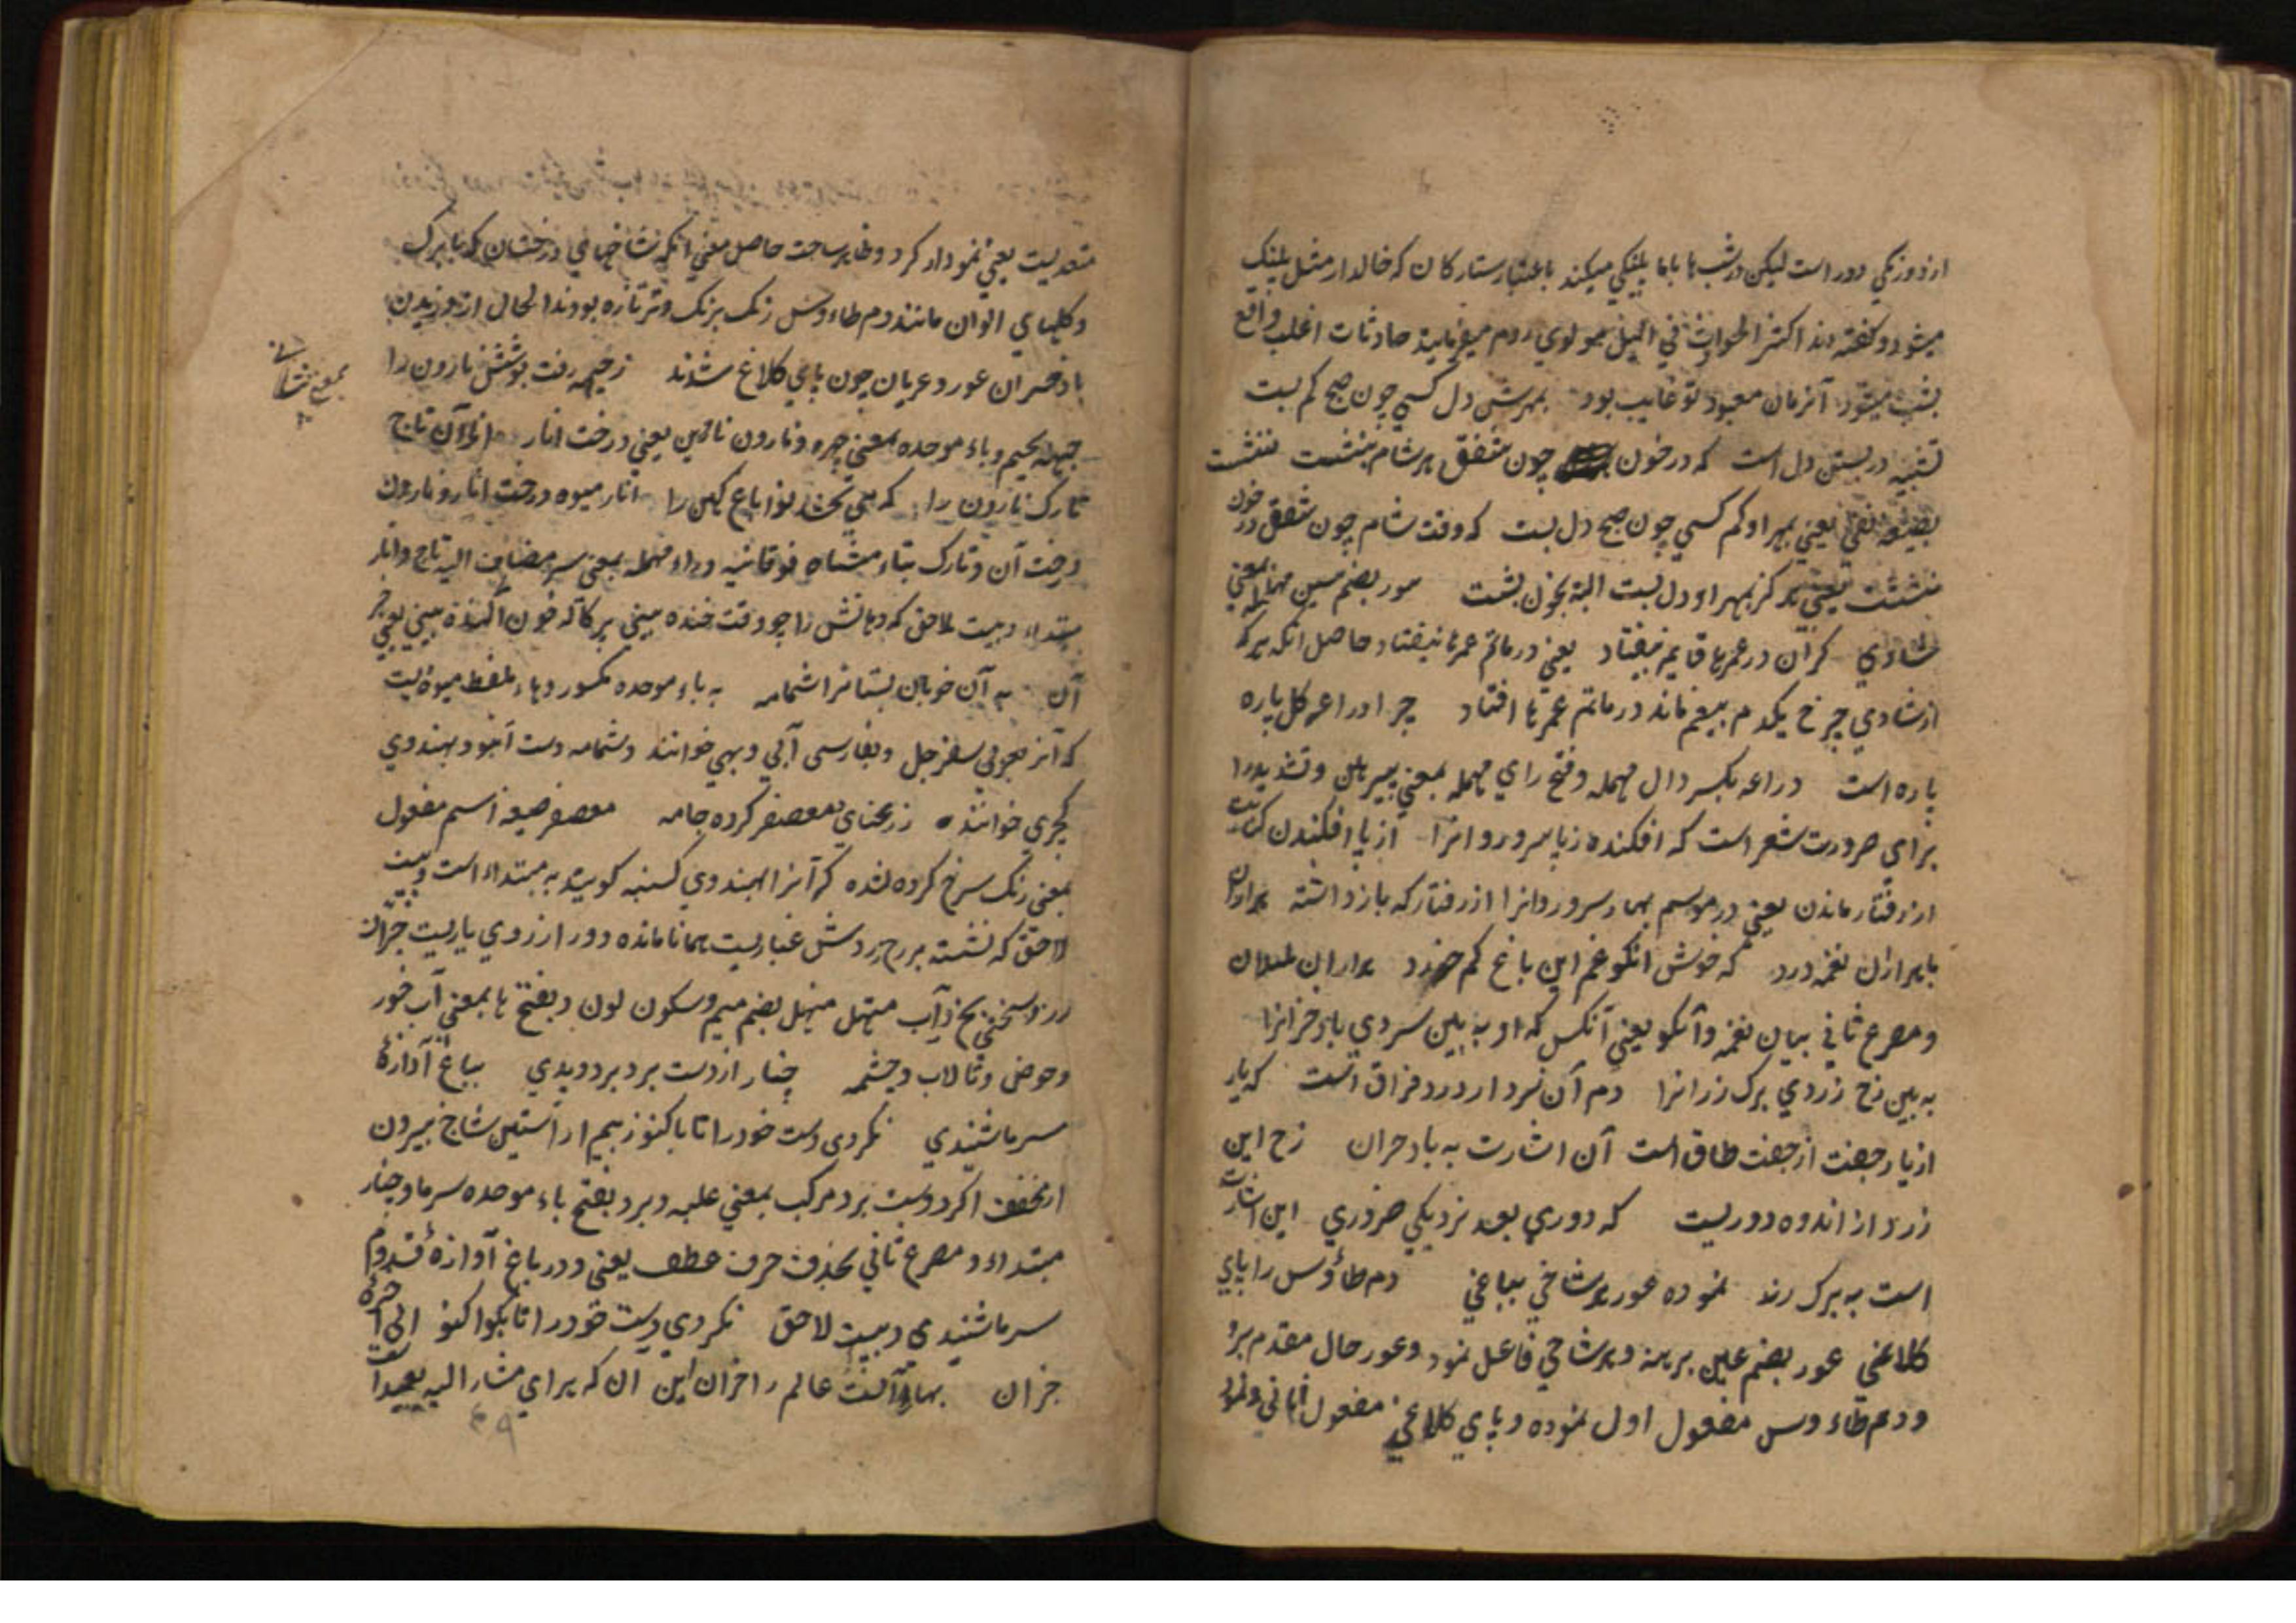 از دو رنگی دور است لیکن در شبها با ما پلنگی میکند باعتبار ستارکان که خالدار مثل پلنگ
میشود و گفته اند اکثر الحوادث فی اللیل مولوی روم میفرماید حادثات اغلب واقع
بشب میشود آنزمان معبود تو غایب بود بمهرش دل کسی چون صبح کم بست
تشبیه در بستن دل است که در خون چون شفق هر شام ننشست ننشست
بصیغه نفی یعنی بمهر او کم کسی چون صبح دل بست که وقت شام چون شفق در خون
ننشست یعنی هر که بمهر او دل بست البته بخون نشست سور بضم سین مهمله بمعنی
شادی کزان در عمرها قایم نیفتاد یعنی در ماتم عمرها نیفتاد حاصل آنکه هر که
از شادی چرخ یکدم بیغم ماند در ماتم عمرها افتاد چرا دراعه کل پاره
پاره است دراعه بکسر دال مهمله و فتح رای مهمله بمعنی پیرهن و تشدید را
برای ضرورت شعر است که افکنده ز پا سرو روانرا از پا افکندن کنایت
از رفتار ماندن یعنی در موسم بهار سرو روانرا از رفتار که باز داشته هزاران
با هزاران نغمه درد که خوش آنکو غم این باغ کم خورد هزاران بلبلان
و مصرع ثانی بیان نغمه و آنکو یعنی آنکس که او به بین سردی باد خزانرا
به بین رخ زردی برک رزانرا دم آن سرد از درد فراق است که یار
از یار جفت از جفت طاق است آن اشارت به باد خزان رخ این
زرد از اندوه دوریست که دوری بعد نزدیکی ضروری این اشارت
است به برک رز نموده عور هر شاخی بباغی دم طاؤس را پای
کلاغی عور بضم عین برهنه و هر شاخی فاعل نمود و عور حال مقدم برو
و دم طاءوس مفعول اول نموده و پای کلاغی مفعول ثانی و نمود
متعدیست یعنی نمودار کرد و ظاهر ساخت حاصل معنی آنکه شاخهای درختان که با برک
و کلهای الوان مانند دم طاءوس رنک برنک و تر تازه بودند الحال از وزیدن
باد خزان عور و عریان چون پای کلاغ شدند ز جبهه رفت پوشش نارون را
جبهه بجیم و باء موحده بمعنی چهره و نارون نازبن یعنی درخت انار انار آن تاج
تارک نارون را که می بخشد نوا باغ کهن را انار میوه درخت انار و نارون
درخت آن و تارک بتاء مثناه فوقانیه و راء مهمله بمعنی سر مضاف الیه تاج و انار
مبتداء و بیت لاحق که دهانش را چو وقت خنده بینی پرکاله خون آکنده بینی یعنی خبر
آن به آن خوبان بستانرا شمامه به باء موحده مکسور و هاء ملفظ میوه ایست
که آنرا بعربی سفرجل و بفارسی آبی و بهی خوانند و شمامه دست آنبو و بهندوی
کجری خوانند ز رعنای معصفر کرده جامه معصفر صیغه اسم مفعول
بمعنی رنک سرخ کرده شده که آنرا بهندوی کسنبه کویند به مبتداء است و بیت
لاحق که نشسته بر رخ زردش غباریست همانا مانده دور از روی یاریست خبر آن
رز سختی یخ ز آب منهل منهل بضم میم و سکون نون و بفتح ها بمعنی آب خور
و حوض و تالاب و چشمه چنار از دست برد برد دیدی بباغ آوازهٔ
سرما شنیدی نکردی دست خود را تا باکنون ز بیم ار آستین شاخ بیرون
ار مخفف اکر دست برد مرکب بمعنی غلبه و برد بفتح باء موحده سرما و چنار
مبتداء و مصرع ثانی بحذف حرف عطف یعنی و در باغ آوازهٔ قدوم
سرما شنیدی و بیت لاحق نکردی دست خود را تا باکنون الی آخره
خزان بهار آنست عالم را خزان این آن که برای مشار الیه بعید است
بمعنی پیشانی
۴۹